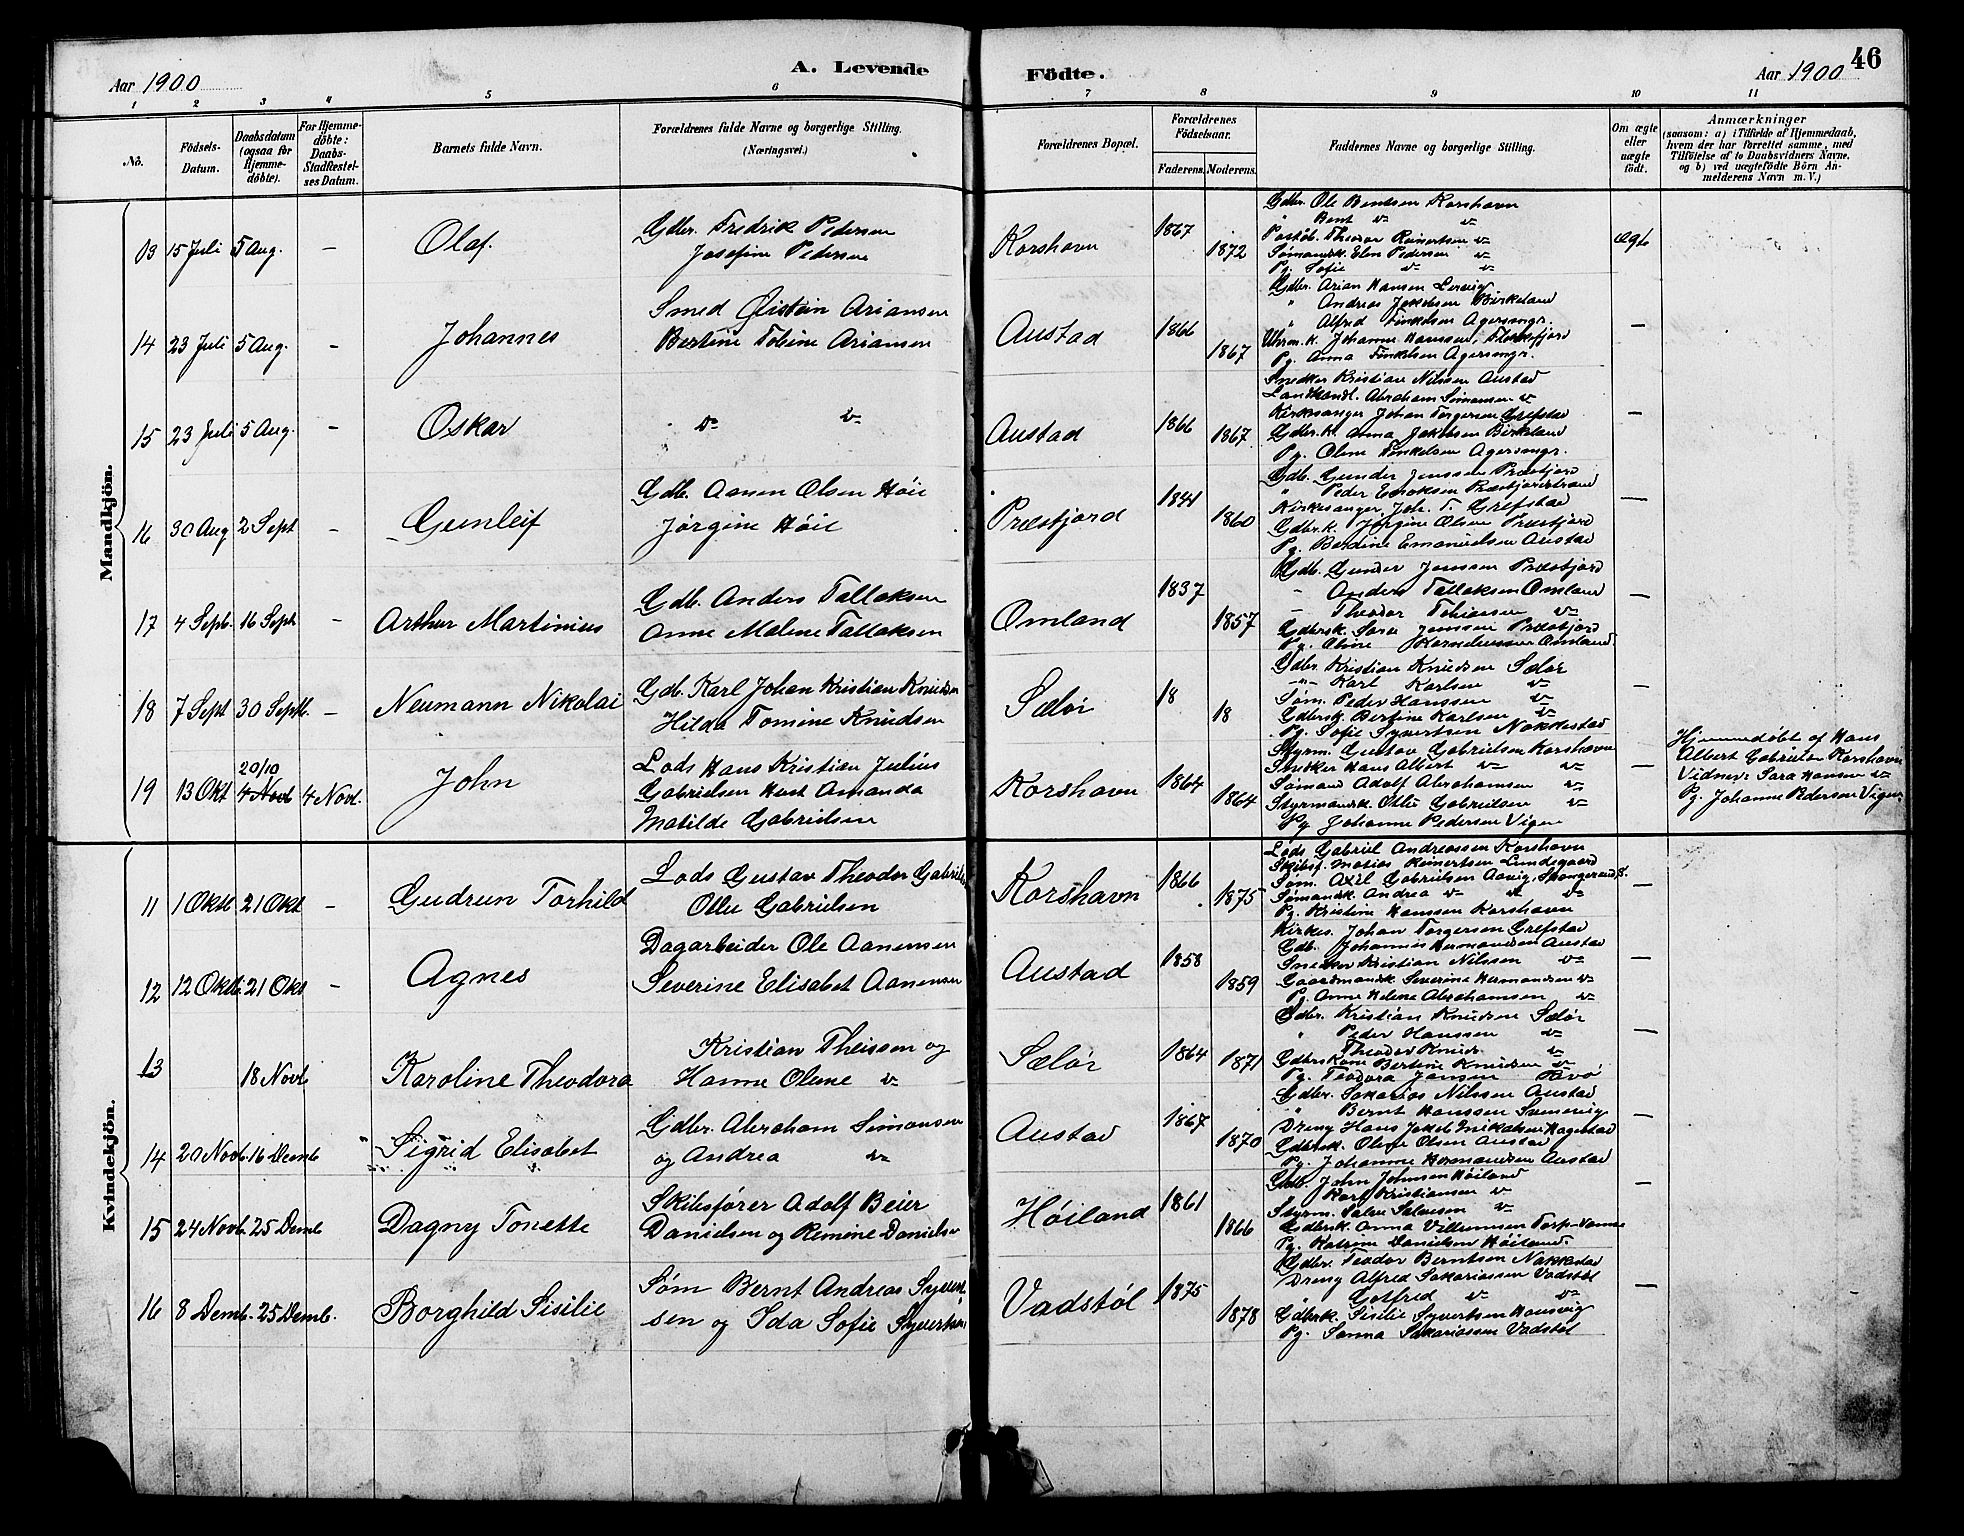 46
Aar 1900
A. Levende
Födte.
Aar 1900
1 2 3 4 5 6 7 8 9 10 11
No.
Födsels-Datum.
Daabsdatum (ogsaa for Hjemme-döbte).
For Hjemme-döbte: Daabs-Stadfestel-ses Datum.
Barnets fulde Navn.
Forældrenes fulde Navne og borgerlige Stilling.
(Næringsvei.)
Forældrenes Bopæl.
Forældrenes Födselsaar.
Faderens.
Moderens.
Faddernes Navne og borgerlige Stilling.
Om ægte eller uægte födt.
Anmærkninger
(saasom: a) i Tilfælde af Hjemmedaab, hvem der har forrettet samme, med Tilföielse af to Daabsvidners Navne, og b) ved uægtefödte Börn An-melderens Navn m. V.)
Mandkjön.
13 15 Juli 5 Aug. – Olaf.
Gdbr. Fredrik Pedersen
Josefine Pedersen
Korshavn 1867 1872
Gdbr. Ole Bentsen Korshavn
" Bent v– v–
Theodor Reinertsen v–
Sømandsk. Elen Pedersen v–
Pg. Sofie v– v–
ægte
14 23 Juli 5 Aug. – Johannes
Smed Ariansen
Bertine Tobine Ariansen
Austad 1866 1867
Gdbr. Arian Hansen Lervig
" Andreas Jakobsen Birkeland
" Alfred Finkelsen Agersmgr.
Johanne Hanssen,
Pg. Anna Finkelsen Agersmgr.
–
15 23 Juli 5 Aug. – Oskar
v– v–
Austad 1866 1867
Snedker Kristian Nilssen Austad
Landhandl. Abraham Simonsen v–
Kirkesanger Johan Torgersen Grefstad
Gdbr.k. Anna Jakobsen Birkland
Pg. Olene Finkelsen Agersmgr.
–
16 30 Aug 2 Sept – Gunleif
Gdb. Aanen Olsen Høie
Jørgine Høie
Præstfjord 1841 1860
Gdb. Gunder Jenssen Præstfjord
" Peder Enoksen
Kirkesanger Joh. T. Grefstad
Gdbr.k. Jørgine Olsen Præstfjord
Pg. Berdine Emanuelsen Austad
–
17 4 Sept. 16 Sept – Arthur Martinius
Gdb. Anders Tallaksen
Anne Malene Tallaksen
Omland 1837 1857
Gdb. Gunder Jenssen Præstfjord
– Anders Tallaksen Omland
– Theodor Tobiassen v–
Gdbersk. Sara Jenssen Præstfjord
Pg. Aline Korneliussen Omland
–
18 7 Sept 30 Septb. – Neumann Nikolai
Gdb. Karl Johan Kristian Knudsen
Hilda Tomine Knudsen
Sælør 18 18
Gdbr. Kristian Knudsen Sælør
–"– Karl Karlsen v–
Søm. Peder Hanssen v–
Gdbersk. Bertine Karlsen v–
Pg. Sofie Syvertsen Nakkestad
–
19 13 Okt 20/10 4 Novb 4 Novb. John
Lods Hans Kristian Julius
Gabrielsen Amanda
Matilde Gabrielsen
Korshavn 1864 1864
Styrm. Gustav Gabrielsen Korshavn
Snedker Hans Albert v– v–
Sømand Adolf Abrahamsen v–
Styrmandsk. Otlie Gabrielsen v–
Pg Johanne Pedersen Vigen
–
Hjemmedøbt af Hans
Albert Gabrielsen Korshavn
Vidner: Sara Hansen v–
Pg. Johanne Pedersen Vigen
Kvindekjön.
11 1 Oktb 21 Okt – Gudrun Torhild
Lods Gustav Theodor Gabrielsen
Otlie Gabrielsen
Korshavn 1866 1875
Lods Gabriel Andreassen Korshavn
Skibsf. Matias Reinertsen Lundegaard
Søm. Axel Gabrielsen
Sømandk. Andrea v– v– v–
Pg. Kristine Hanssen Korshavn
–
12 12 Oktb. 21 Okt – Agnes
Dagarbeider Ole Aanensen
Severine Elisabet Aanensen
Austad 1858 1859
Kirkes. Johan Torgersen Grefstad
Gdb. Johannes Hermandsen Austad
Snedker Kristian Nilssen v–
Gaardmandsk. Severine Hermandsen v–
Pg. Anne Helene Abrahamsen v–
–
13 18 Novb Karoline Theodora
Kristian Theissen og
Hanne Olene v–
Sælør 1864 1871
Gdbr. Kristian Knudsen Sælør
" Peder Hanssen v–
Theodor Knuds. v–
Gdberskone Bertine Knudsen v–
Pg. Teodora Jansen
–
14 20 Novb. 16 Decmb Sigrid Elisabet
Gdbr. Abraham Simonsen
og Andrea v–
Austad 1867 1870
Gdbr. Sakarias Nilssen Austad
" Bernt Hanssen
Dreng Hans Jakob Mikalsen Hagestad
Gdbersk. Olene Olsen Austad
Pg. Johanne Hermandsen Austad
–
15 24 Novb. 25 Decmb Dagny Tonette
Skibsfører Adolf Beier
Danielsen og Remine Danielsen
Høiland 1861 1866
Gdb. John Johnsen Høiland
" Karl Kristiansen v–
Styrm. Salve Salvesen v–
Gdbersk. Anna Villumsen Torp-Vanse
Pg. Katrine Danielsen Høiland.
–
16 8 Decmb. 25 Decmb. Borghild Sisilie
Søm Bernt Andreas Syvert-
sen og Ida Sofie Syvertsen
Vadstøl 1875 1878
Gdbr. Teodor Berntsen Nakkestad
Dreng Alfred Sakariassen Vadstøl
" Gotfred v– v–
Gdbersk. Sisilie Syvertsen Hansvig
Pg. Sanna Sakariassen Vadstøl
–